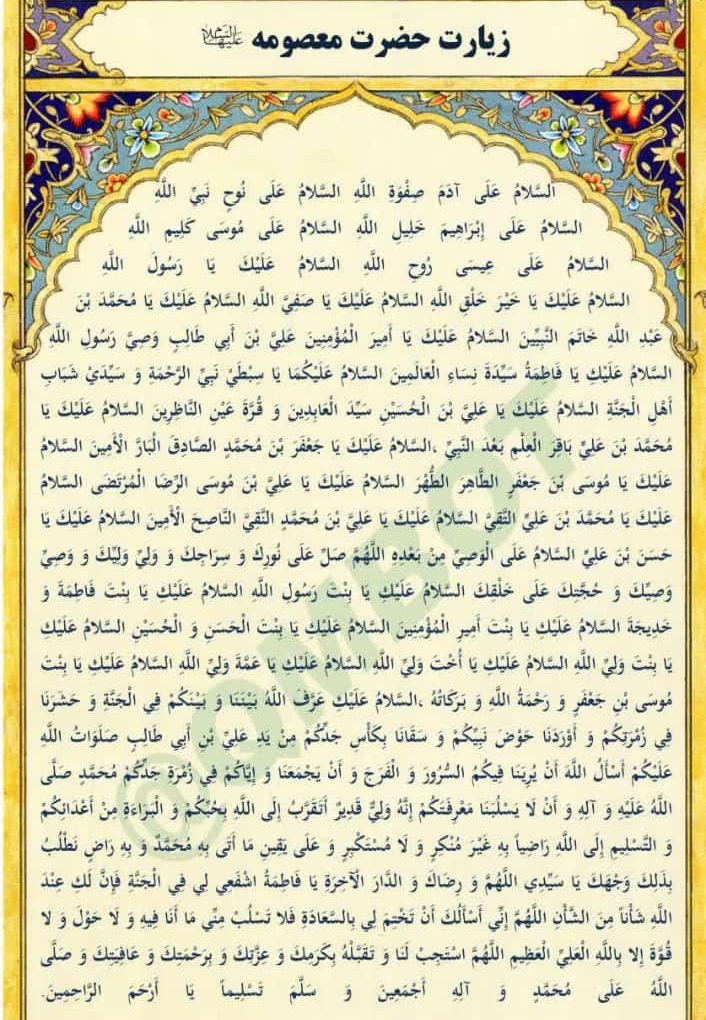 زیارت حضرت معصومه علیهاالسلام
السَّلامُ عَلَى آدَمَ صِفْوَةِ اللَّهِ السَّلامُ عَلَى نُوحٍ نَبِيِّ اللَّهِ
السَّلامُ عَلَى إِبْرَاهِيمَ خَلِيلِ اللَّهِ السَّلامُ عَلَى مُوسَى كَلِيمِ اللَّهِ
السَّلامُ عَلَى عِيسَى رُوحِ اللَّهِ السَّلامُ عَلَيْكَ يَا رَسُولَ اللَّهِ
السَّلامُ عَلَيْكَ يَا خَيْرَ خَلْقِ اللَّهِ السَّلامُ عَلَيْكَ يَا صَفِيَّ اللَّهِ السَّلامُ عَلَيْكَ يَا مُحَمَّدَ بْنَ
عَبْدِ اللَّهِ خَاتَمَ النَّبِيِّينَ السَّلامُ عَلَيْكَ يَا أَمِيرَ الْمُؤْمِنِينَ عَلِيَّ بْنَ أَبِي طَالِبٍ وَصِيَّ رَسُولِ اللَّهِ
السَّلامُ عَلَيْكِ يَا فَاطِمَةُ سَيِّدَةَ نِسَاءِ الْعَالَمِينَ السَّلامُ عَلَيْكُمَا يَا سِبْطَيْ نَبِيِّ الرَّحْمَةِ وَ سَيِّدَيْ شَبَابِ
أَهْلِ الْجَنَّةِ السَّلامُ عَلَيْكَ يَا عَلِيَّ بْنَ الْحُسَيْنِ سَيِّدَ الْعَابِدِينَ وَ قُرَّةَ عَيْنِ النَّاظِرِينَ السَّلامُ عَلَيْكَ يَا
مُحَمَّدَ بْنَ عَلِيٍّ بَاقِرَ الْعِلْمِ بَعْدَ النَّبِيِّ ،السَّلامُ عَلَيْكَ يَا جَعْفَرَ بْنَ مُحَمَّدٍ الصَّادِقَ الْبَارَّ الْأَمِينَ السَّلامُ
عَلَيْكَ يَا مُوسَى بْنَ جَعْفَرٍ الطَّاهِرَ الطُّهْرَ السَّلامُ عَلَيْكَ يَا عَلِيَّ بْنَ مُوسَى الرِّضَا الْمُرْتَضَى السَّلامُ
عَلَيْكَ يَا مُحَمَّدَ بْنَ عَلِيٍّ التَّقِيَّ السَّلامُ عَلَيْكَ يَا عَلِيَّ بْنَ مُحَمَّدٍ النَّقِيَّ النَّاصِحَ الْأَمِينَ السَّلامُ عَلَيْكَ يَا
حَسَنَ بْنَ عَلِيٍّ السَّلامُ عَلَى الْوَصِيِّ مِنْ بَعْدِهِ اللَّهُمَّ صَلِّ عَلَى نُورِكَ وَ سِرَاجِكَ وَ وَلِيِّ وَلِيِّكَ وَ وَصِيِّ
وَصِيِّكَ وَ حُجَّتِكَ عَلَى خَلْقِكَ السَّلامُ عَلَيْكِ يَا بِنْتَ رَسُولِ اللَّهِ السَّلامُ عَلَيْكِ يَا بِنْتَ فَاطِمَةَ وَ
خَدِيجَةَ السَّلامُ عَلَيْكِ يَا بِنْتَ أَمِيرِ الْمُؤْمِنِينَ السَّلامُ عَلَيْكِ يَا بِنْتَ الْحَسَنِ وَ الْحُسَيْنِ السَّلامُ عَلَيْكِ
يَا بِنْتَ وَلِيِّ اللَّهِ السَّلامُ عَلَيْكِ يَا أُخْتَ وَلِيِّ اللَّهِ السَّلامُ عَلَيْكِ يَا عَمَّةَ وَلِيِّ اللَّهِ السَّلامُ عَلَيْكِ يَا بِنْتَ
مُوسَى بْنِ جَعْفَرٍ وَ رَحْمَةُ اللَّهِ وَ بَرَكَاتُهُ ،السَّلامُ عَلَيْكِ عَرَّفَ اللَّهُ بَيْنَنَا وَ بَيْنَكُمْ فِي الْجَنَّةِ وَ حَشَرَنَا
فِي زُمْرَتِكُمْ وَ أَوْرَدَنَا حَوْضَ نَبِيِّكُمْ وَ سَقَانَا بِكَأْسِ جَدِّكُمْ مِنْ يَدِ عَلِيِّ بْنِ أَبِي طَالِبٍ صَلَوَاتُ اللَّهِ
عَلَيْكُمْ أَسْأَلُ اللَّهَ أَنْ يُرِيَنَا فِيكُمُ السُّرُورَ وَ الْفَرَجَ وَ أَنْ يَجْمَعَنَا وَ إِيَّاكُمْ فِي زُمْرَةِ جَدِّكُمْ مُحَمَّدٍ صَلَّى
اللَّهُ عَلَيْهِ وَ آلِهِ وَ أَنْ لَا يَسْلُبَنَا مَعْرِفَتَكُمْ إِنَّهُ وَلِيٌّ قَدِيرٌ أَتَقَرَّبُ إِلَى اللَّهِ بِحُبِّكُمْ وَ الْبَرَاءَةِ مِنْ أَعْدَائِكُمْ
وَ التَّسْلِيمِ إِلَى اللَّهِ رَاضِياً بِهِ غَيْرَ مُنْكِرٍ وَ لَا مُسْتَكْبِرٍ وَ عَلَى يَقِينِ مَا أَتَى بِهِ مُحَمَّدٌ وَ بِهِ رَاضٍ نَطْلُبُ
بِذَلِكَ وَجْهَكَ يَا سَيِّدِي اللَّهُمَّ وَ رِضَاكَ وَ الدَّارَ الْآخِرَةِ يَا فَاطِمَةُ اشْفَعِي لِي فِي الْجَنَّةِ فَإِنَّ لَكِ عِنْدَ
اللَّهِ شَأْناً مِنَ الشَّأْنِ اللَّهُمَّ إِنِّي أَسْأَلُكَ أَنْ تَخْتِمَ لِي بِالسَّعَادَةِ فَلا تَسْلُبْ مِنِّي مَا أَنَا فِيهِ وَ لَا حَوْلَ وَ لا
قُوَّةَ إِلا بِاللَّهِ الْعَلِيِّ الْعَظِيمِ اللَّهُمَّ اسْتَجِبْ لَنَا وَ تَقَبَّلْهُ بِكَرَمِكَ وَ عِزَّتِكَ وَ بِرَحْمَتِكَ وَ عَافِيَتِكَ وَ صَلَّى
اللَّهُ عَلَى مُحَمَّدٍ وَ آلِهِ أَجْمَعِينَ وَ سَلَّمَ تَسْلِيماً يَا أَرْحَمَ الرَّاحِمِينَ.
@QOMBOT